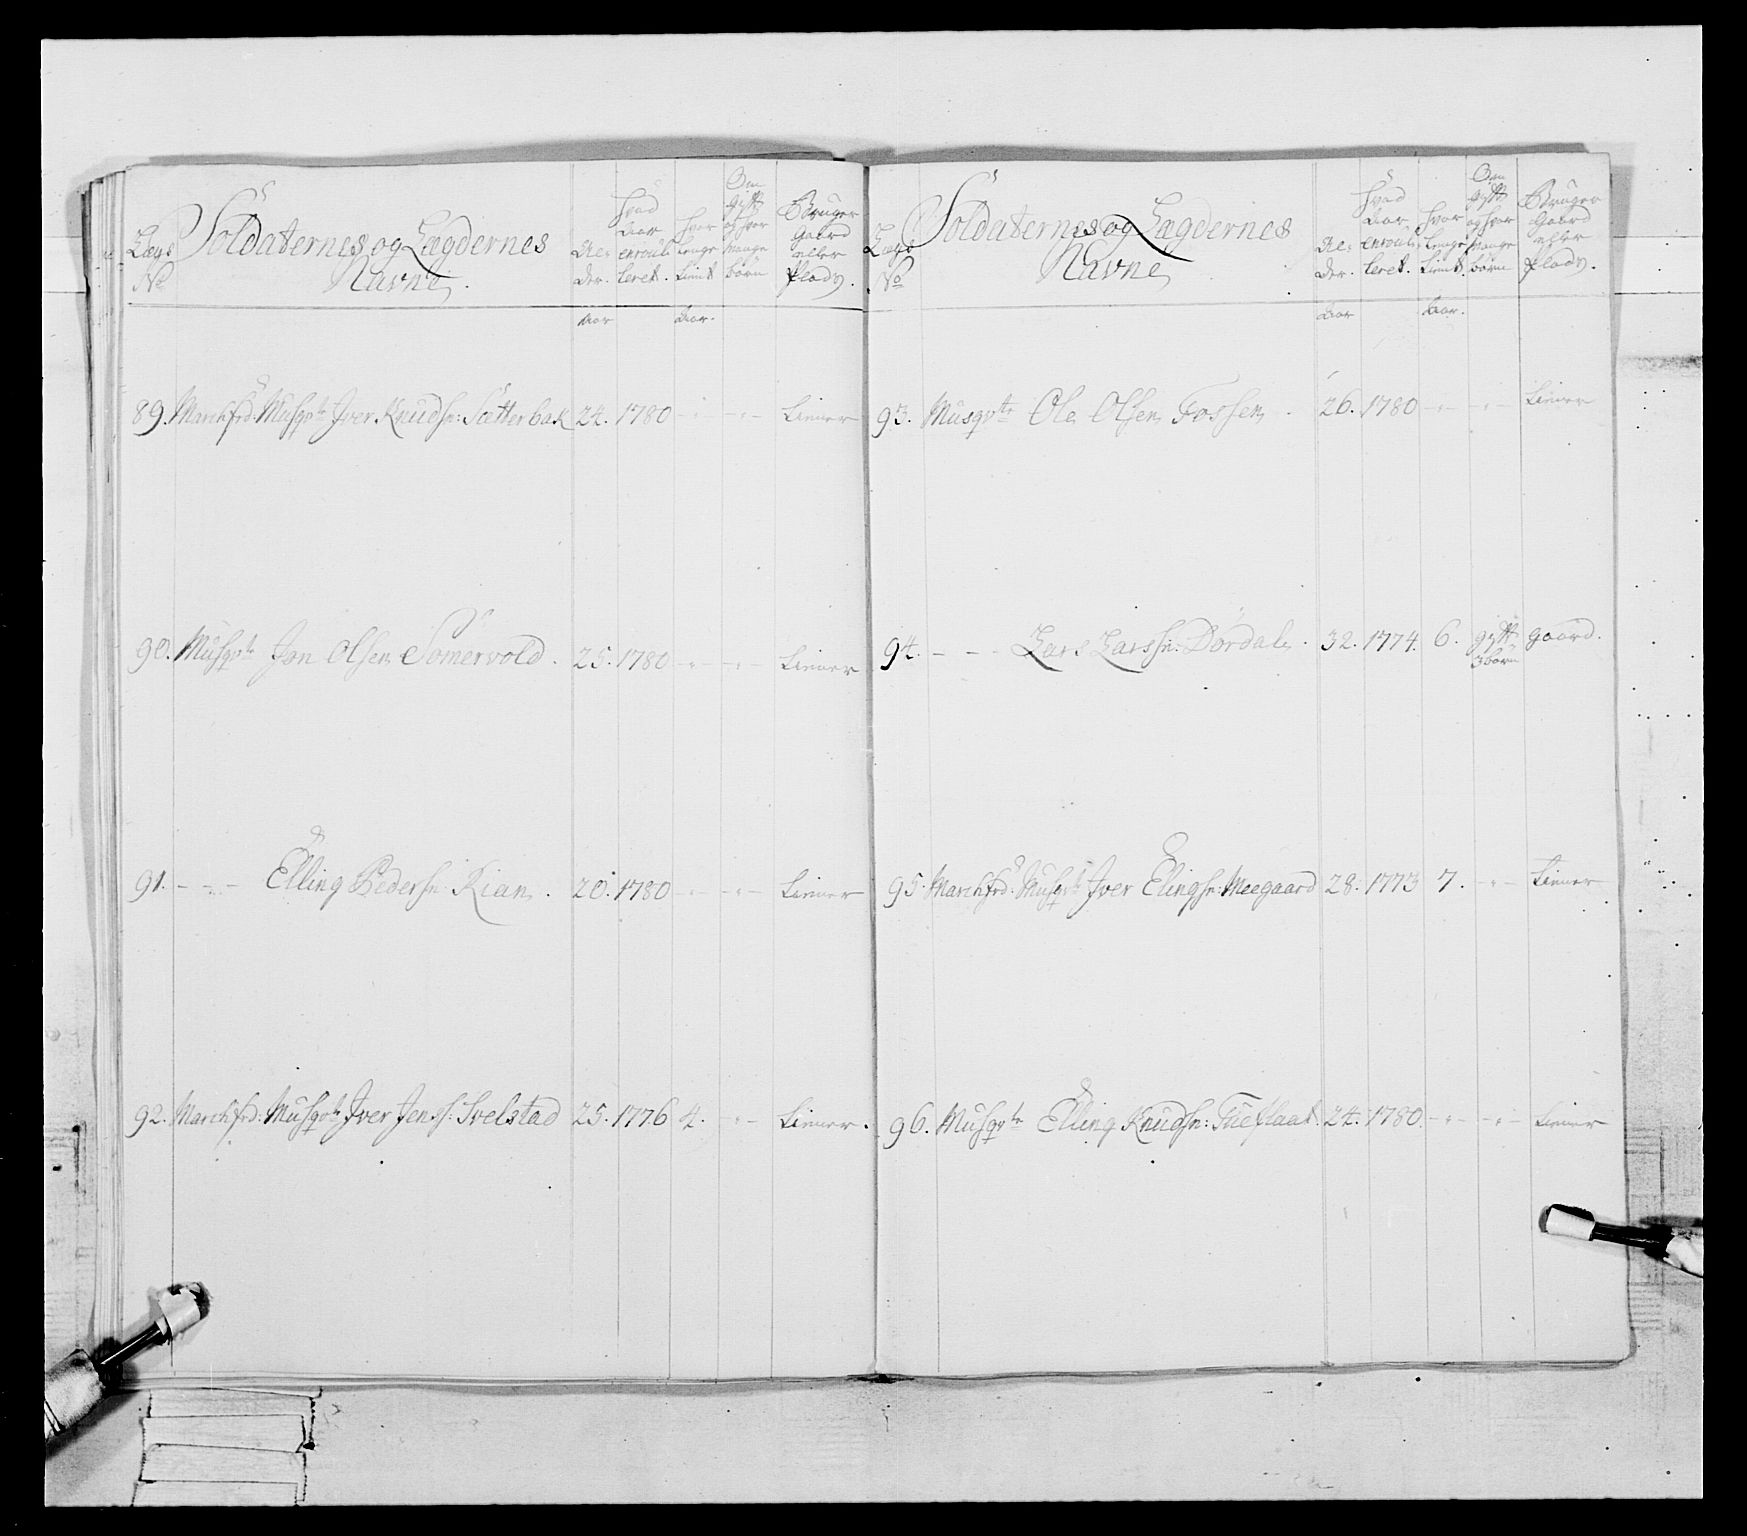 Lægs No
Soldaternes og Lægdernes Navne.
Al-der.
hvad Aar enroul-leret.
hvor lenge tient
Om gift og hvor mange børn
Bruger Gaard eller Plads.
Aar
Aar.
89. Marchfrd: Musqvtr Iver Knudsn: Sætterbak 24. 1780 - " - - " - tiener
90. Musqvtr Jon Olsen Somervold. 25. 1780 - " - - " - tiener
91. - " - Elling Pedersn: Kian. 20. 1780 - " - - " - tiener
92. Marchfrd: Musqvtr Iver Jenss: Svelstad 25. 1776 4. - " - tiener.
Lægs No
Soldaternes og Lægdernes Navne
Al-der.
hvad Aar enroul-leret.
hvor lenge tient.
Om gift og hvor mange børn
Bruger Gaard eller Plads.
Aar
Aar.
93. Musqvtr Ole Olsen Fossen. 26. 1780 - " - - " - tiener
94. - - - Lars Larssn: Dørdal. 32. 1774. 6. gift 3 børn gaard.
95. Marchfrd: Musqvtr Iver Elingsn: Meegaard 28. 1773 7. - " - tiener
96. Musqvtr Elling Knudsn: Tueflaat. 24. 1780. - " - - " - tiener